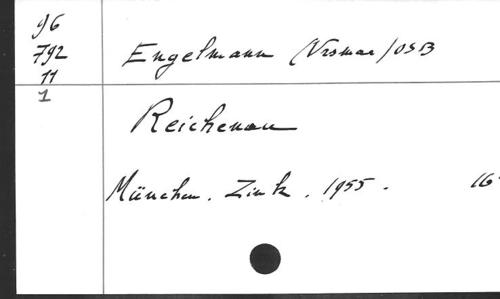 96
792 Engelmann (Ursmar) OSB
11
1
Reichenau
München. Zink. 1955. 16°